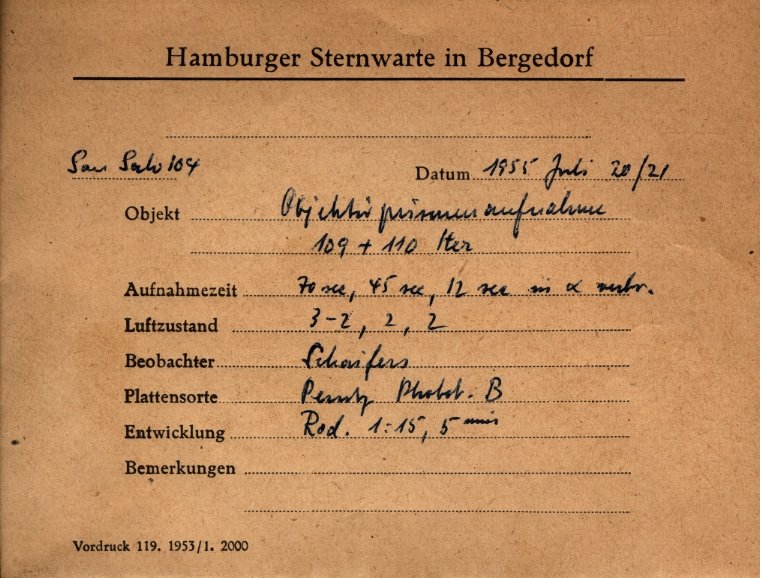 Hamburger Sternwarte in Bergedorf
104 Datum 1955 Juli 20/21
Objekt Objektivprismenaufnahme
109 + 110 Her
Aufnahmezeit 70 sec, 45 sec, 12 sec in α verbr.
Luftzustand 3-2, 2, 2
Beobachter Schaifers
Plattensorte Perutz Phot. B
Entwicklung Rod. 1:15, 5 min
Bemerkungen
Vordruck 119. 1953/1. 2000